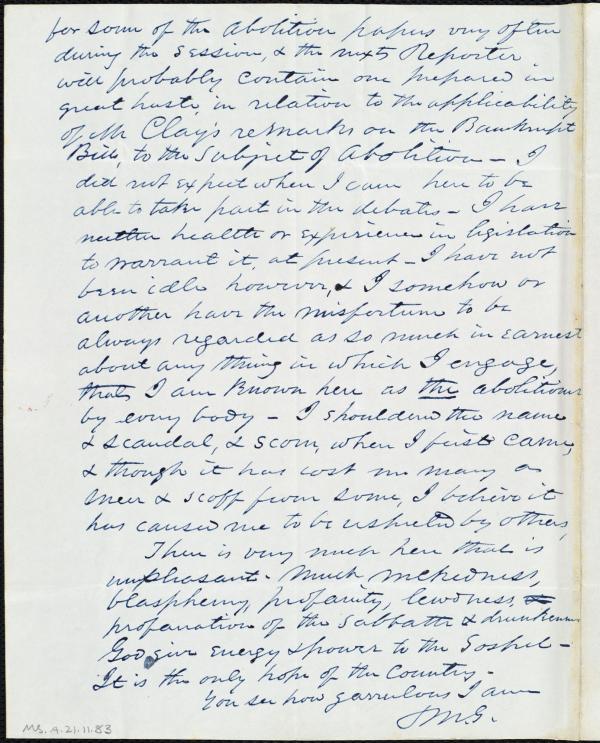 for some of the Abolition papers very often
during the session, & the next Reporter
will probably contain one prepared in
great haste, in relation to the applicability
of Mr Clay's remarks on the Bankrupt
Bill, to the subject of Abolition - I
did not expect when I came here to be
able to take part in the debates - I have
neither health or experience in legislation
to warrant it, at present - I have not
been idle however, & I somehow or
another have the misfortune to be
always regarded as so much in earnest
about any thing in which I engage,
that I am known here as the abolitionist
by every body - I shouldered the name
& scandal, & scorn, when I first came,
& though it has cost me many a
sneer & scoff from some, I believe it
has caused me to be respected by others,
There is very much here that is
unpleasant - Much wickedness,
blasphemy, profanity, lewdness,
profanation of the Sabbath & drunkenness
God give energy & power to the Gospel -
It is the only hope of the Country -
You see how garrulous I am
MS. A.21.11.83